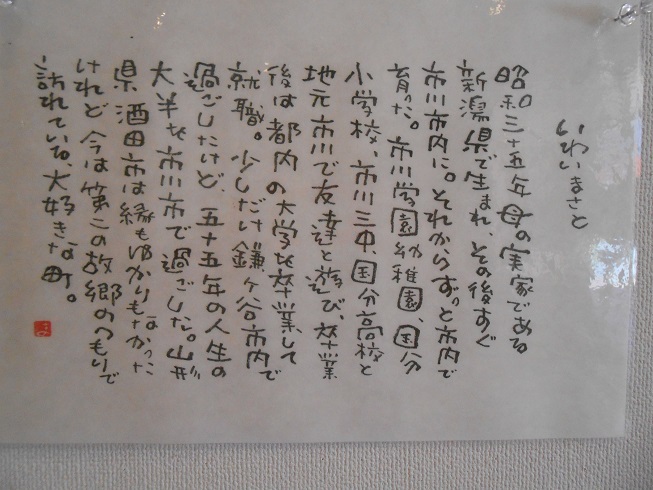 いわいまさと
昭和三十五年母の実家である
新潟県で生まれ、その後すぐ
市川市内に。それからずっと市内で
育った。市川学園幼稚園、国分
小学校、市川三中、国分高校と
地元市川で友達と遊び、卒業
後は都内の大学を卒業して
就職。少しだけ鎌ヶ谷市内で
過ごしたけど、五十五年の人生の
大半を市川市で過ごした。山形
県酒田市は縁もゆかりもなかった
けれど今は第二の故郷のつもりで
訪れている、大好きな町。